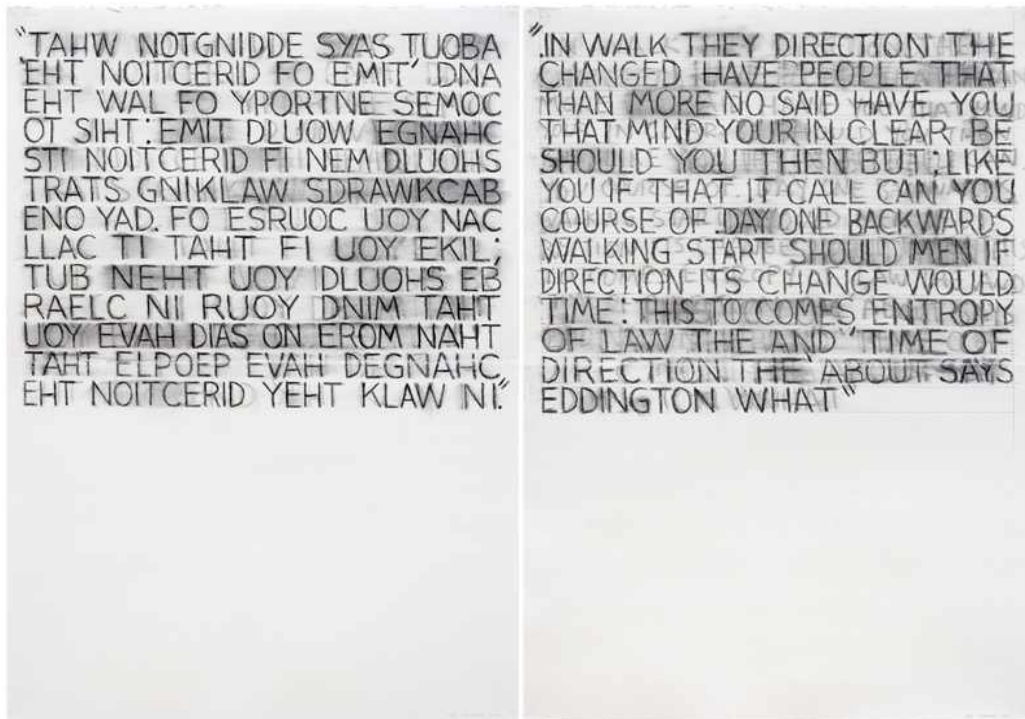 "TAHW NOTGNIDDE SYAS TUOBA
'EHT NOITCERID FO EMIT' DNA
EHT WAL FO YPORTNE SEMOC
OT SIHT: EMIT DLUOW EGNAHC
STI NOITCERID FI NEM DLUOHS
TRATS GNIKLAW SDRAWKCAB
ENO YAD. FO ESRUOC UOY NAC
LLAC TI TAHT FI UOY EKIL;
TUB NEHT UOY DLUOHS EB
RAELC NI RUOY DNIM TAHT
UOY EVAH DIAS ON EROM NAHT
TAHT ELPOEP EVAH DEGNAHC
EHT NOITCERID YEHT KLAW NI."
".IN WALK THEY DIRECTION THE
CHANGED HAVE PEOPLE THAT
THAN MORE NO SAID HAVE YOU
THAT MIND YOUR IN CLEAR BE
SHOULD YOU THEN BUT ;LIKE
YOU IF THAT IT CALL CAN YOU
COURSE OF .DAY ONE BACKWARDS
WALKING START SHOULD MEN IF
DIRECTION ITS CHANGE WOULD
TIME : THIS TO COMES ENTROPY
OF LAW THE AND 'TIME OF
DIRECTION THE' ABOUT SAYS
EDDINGTON WHAT"